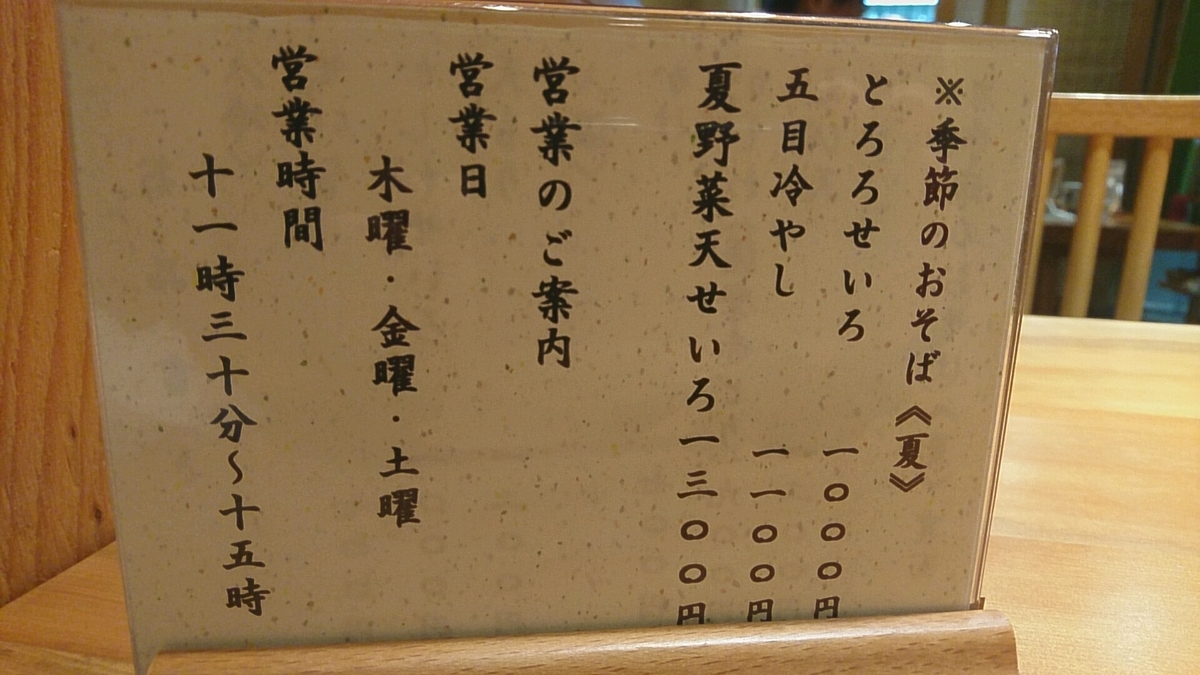 ※季節のおそば《夏》
とろろせいろ 一〇〇〇円
五目冷やし 一一〇〇円
夏野菜天せいろ一三〇〇円
営業のご案内
営業日
木曜・金曜・土曜
営業時間
十一時三十分～十五時